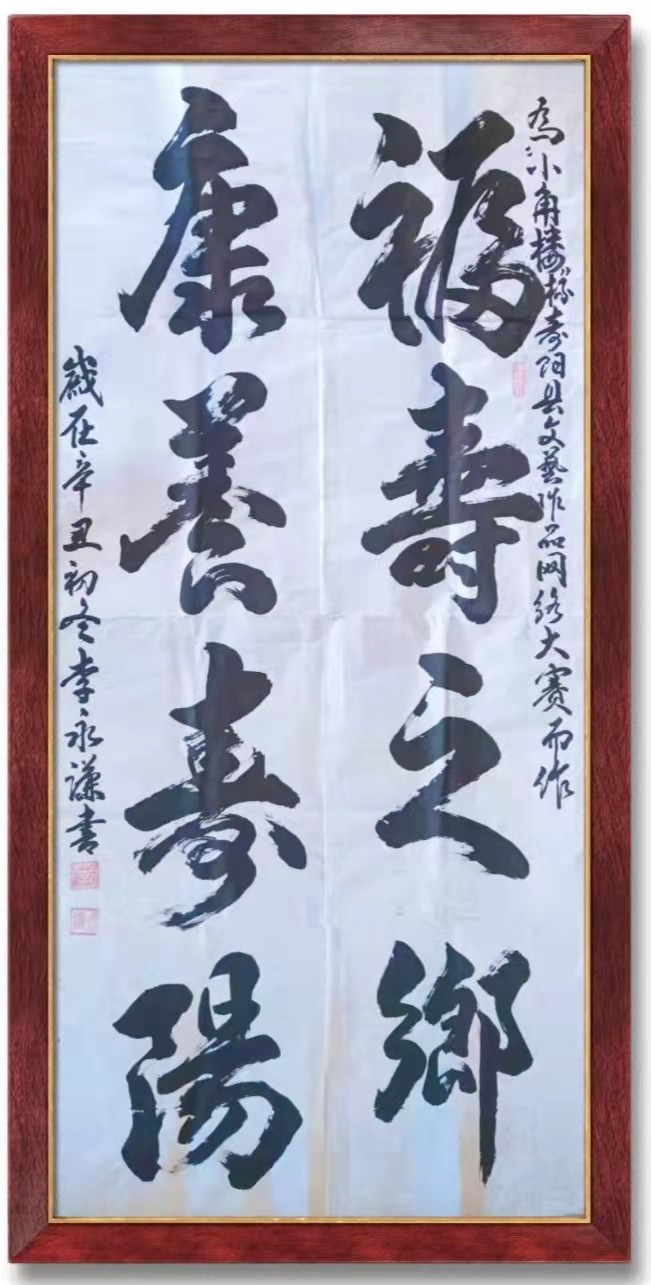 为小角楼杯寿阳县文藝作品网络大赛而作
福壽之鄉
康養寿陽
歲在辛丑初冬李永谦书